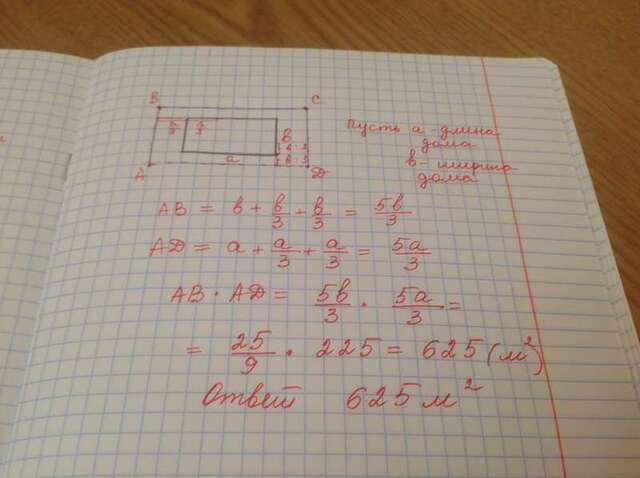 B C
a/3 a/3
B
b:3
a b:3
A D
Пусть a - длина
дома
b - ширина
дома
AB = b + b/3 + b/3 = 5b/3
AD = a + a/3 + a/3 = 5a/3
AB · AD = 5b/3 · 5a/3 =
= 25/9 · 225 = 625 (м²)
Ответ 625 м²